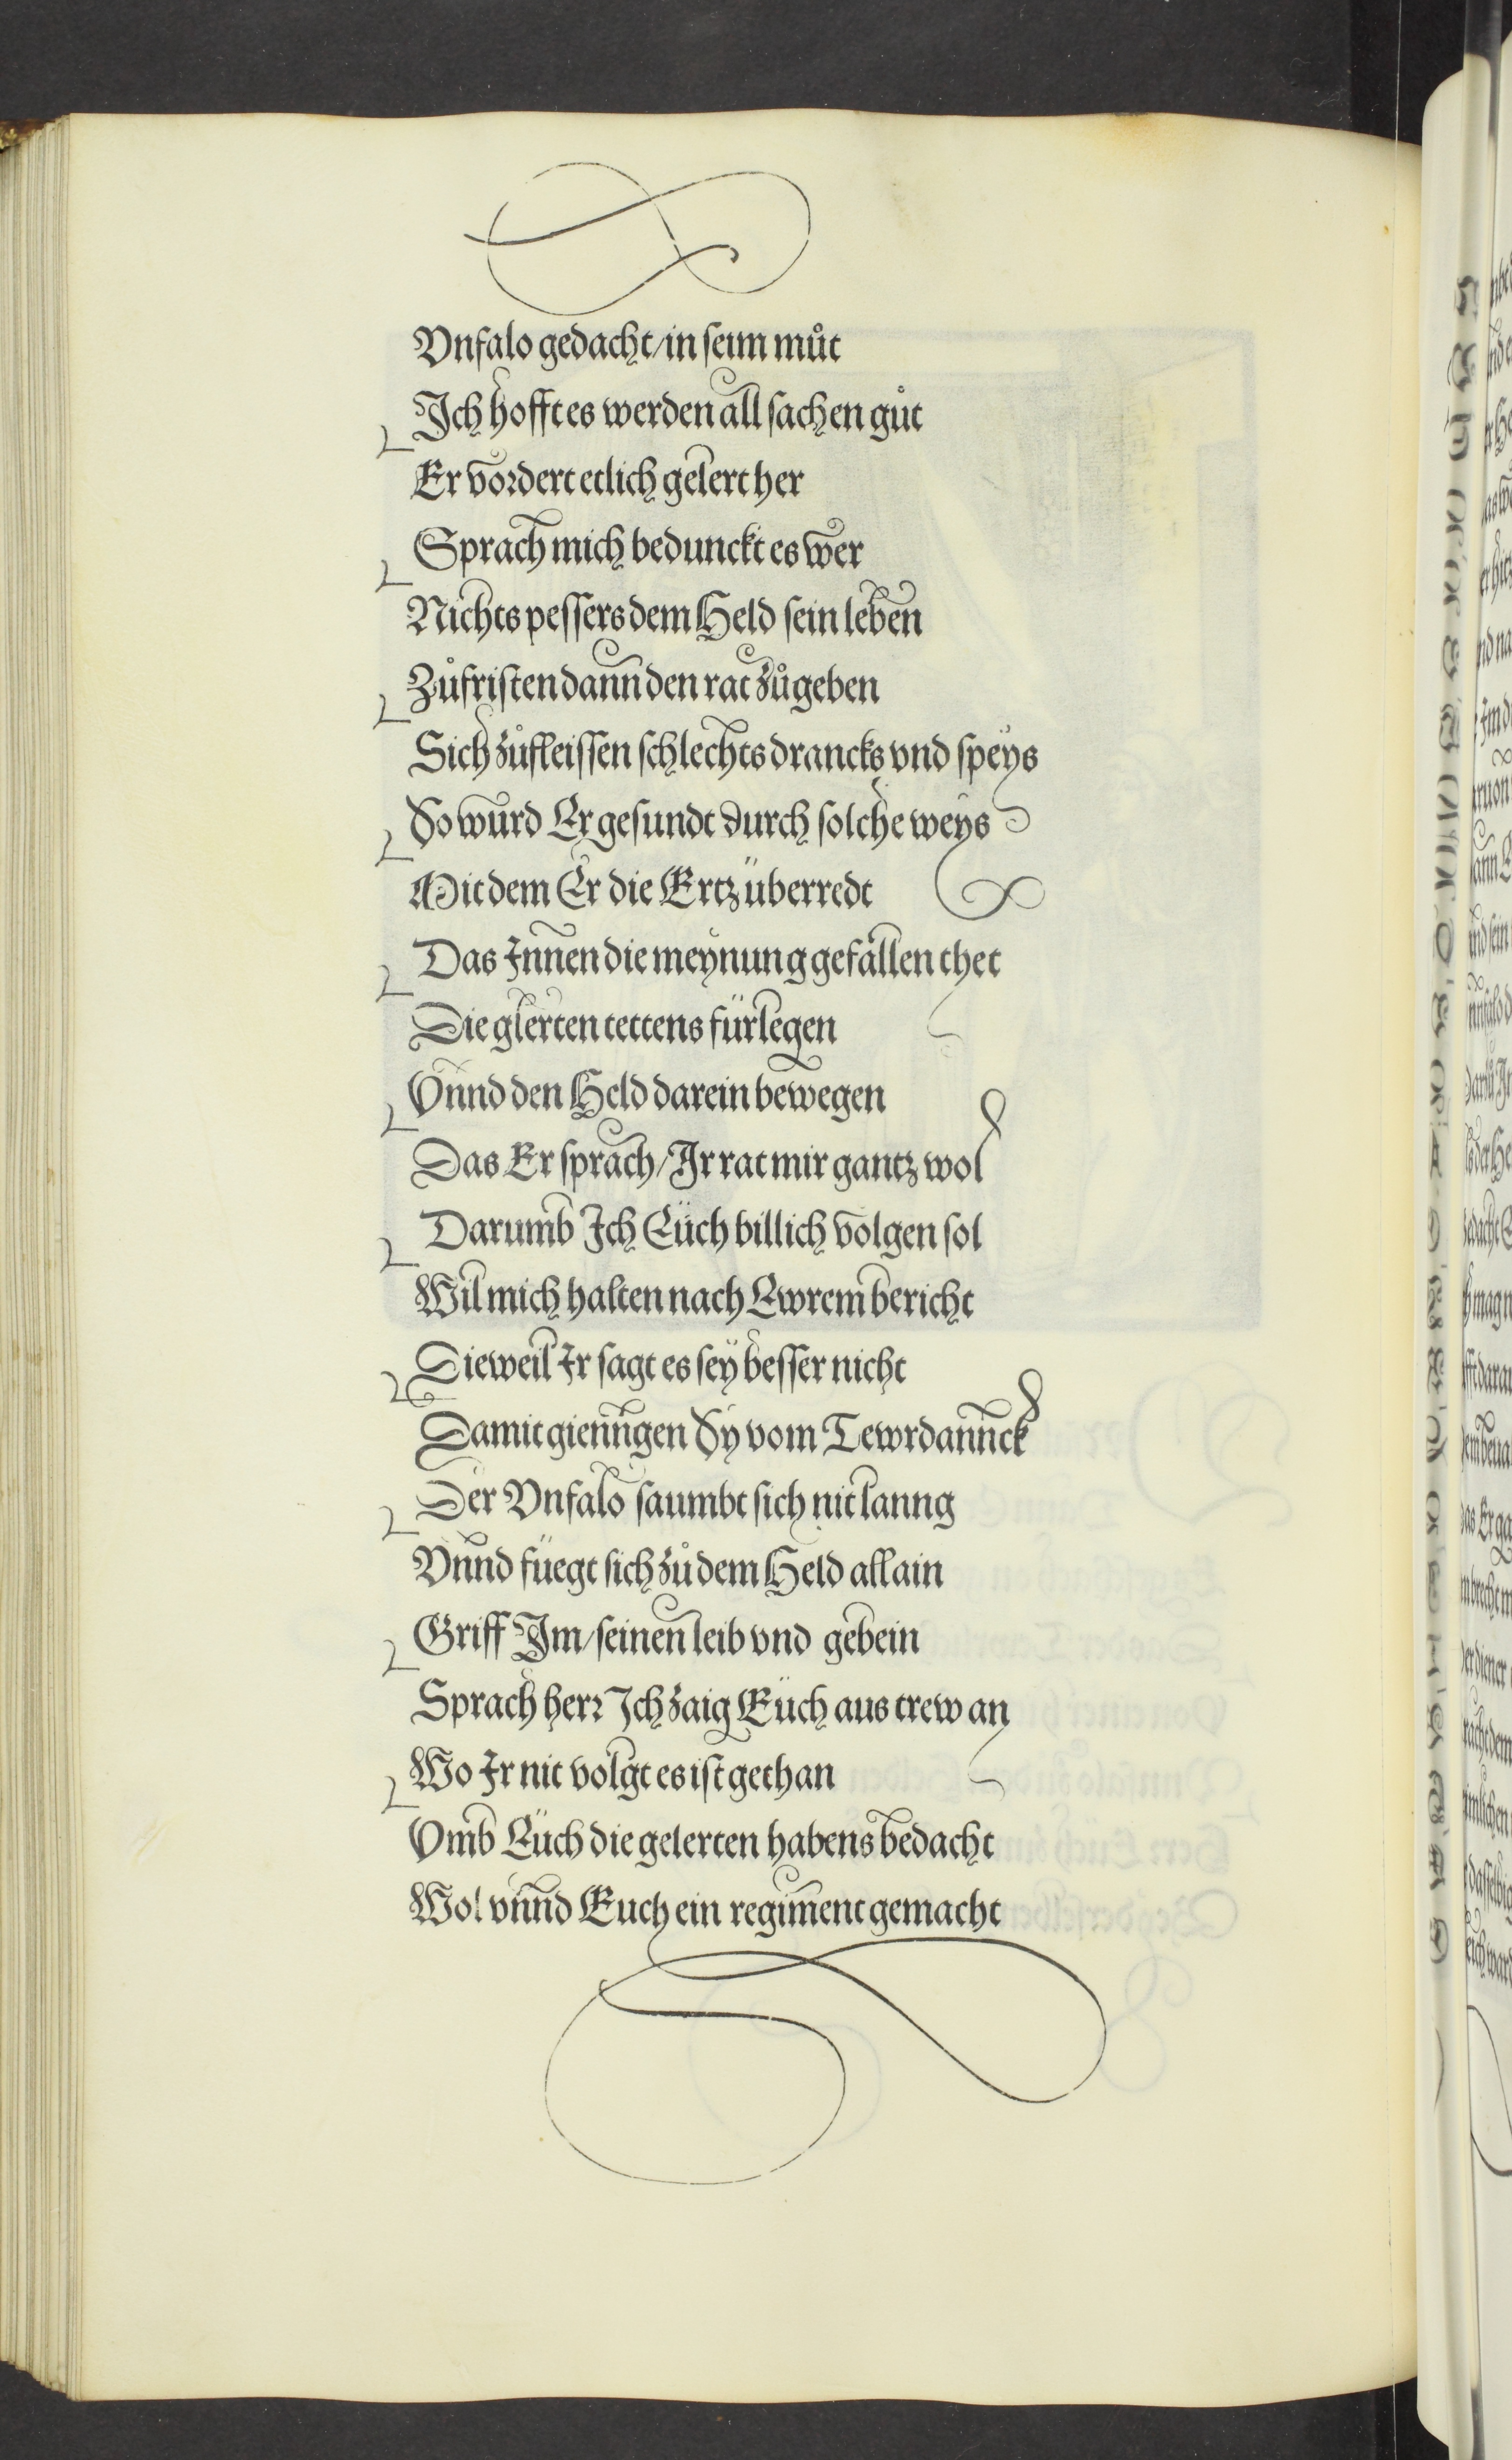 Vnfalo gedacht/in seim můt
Jch hofft es werden all sachen gůt
Er vordert etlich gelert her
Sprach mich bedunckt es wer
Nichts pessers dem Held sein leben
Zůfristen dann den rat zůgeben
Sich zůfleissen schlechts drancks vnd speys
So wurd Er gesundt durch solche weys
Mit dem Er die Ertz überredt
Das Jnnen die meynung gefallen thet
Die glerten tettens fürlegen
Vnnd den Held darein bewegen
Das Er sprach/Jr rat mir gantz wol
Darumb Jch Eüch billich volgen sol
Wil mich halten nach Ewrem bericht
Dieweil Jr sagt es sey besser nicht
Damit gienngen Sy vom Tewrdannck
Der Vnfalo saumbt sich nit lanng
Vnnd füegt sich zů dem Held allain
Griff Jm/seinen leib vnd gebein
Sprach herr Jch zaig Eüch aus trew an
Wo Jr nit volgt es ist gethan
Vmb Eüch die gelerten habens bedacht
Wol vnnd Euch ein regiment gemacht